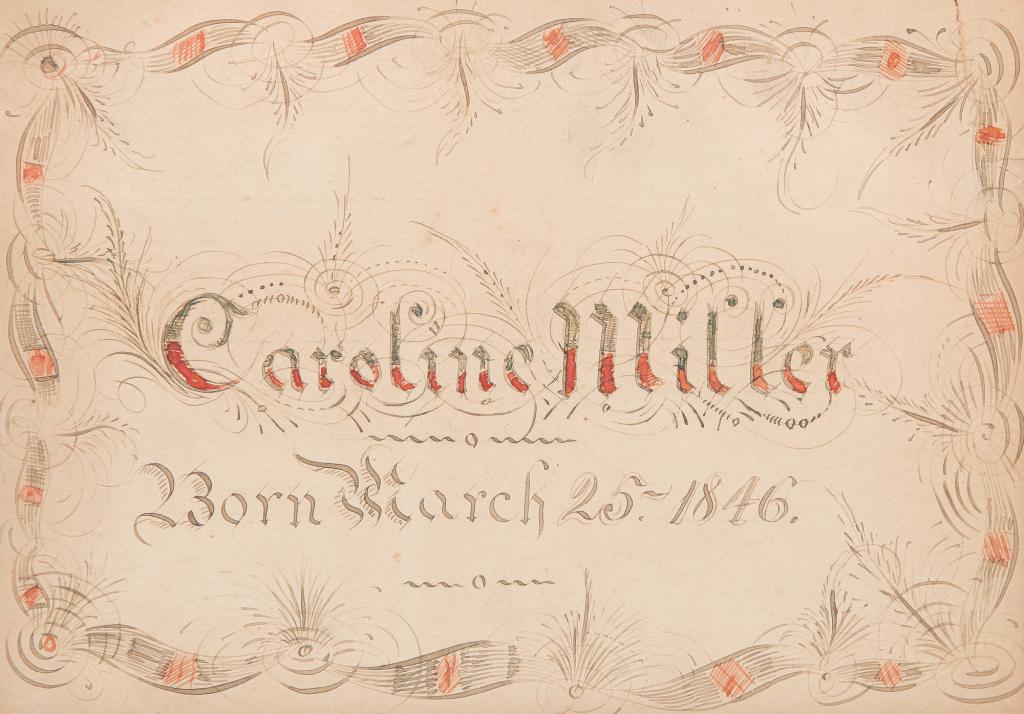 Caroline Miller
Born March 25. 1846.